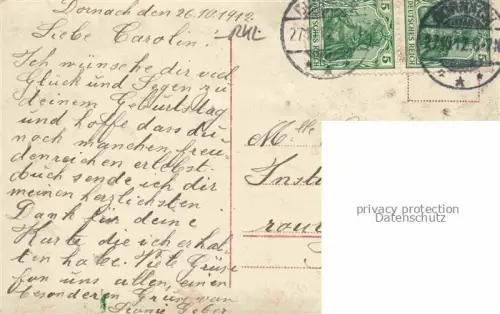 Dornach den 26.10.1912.
Liebe Carolin!
Ich wünsche dir viel
Glück und Segen zu
deinem Geburtstag
und hoffe dass du
noch manchen freu-
denreichen erlebst.
Auch sende ich dir
meinen herzlichsten
Dank für deine
Karte die ich erhal-
ten habe. Viele Grüsse
fon uns allen, einen
besonderen Gruss von
DEUTSCHES REICH
5
5
27.10.12
Mlle
Instu
privacy protection
Daten-Schutz